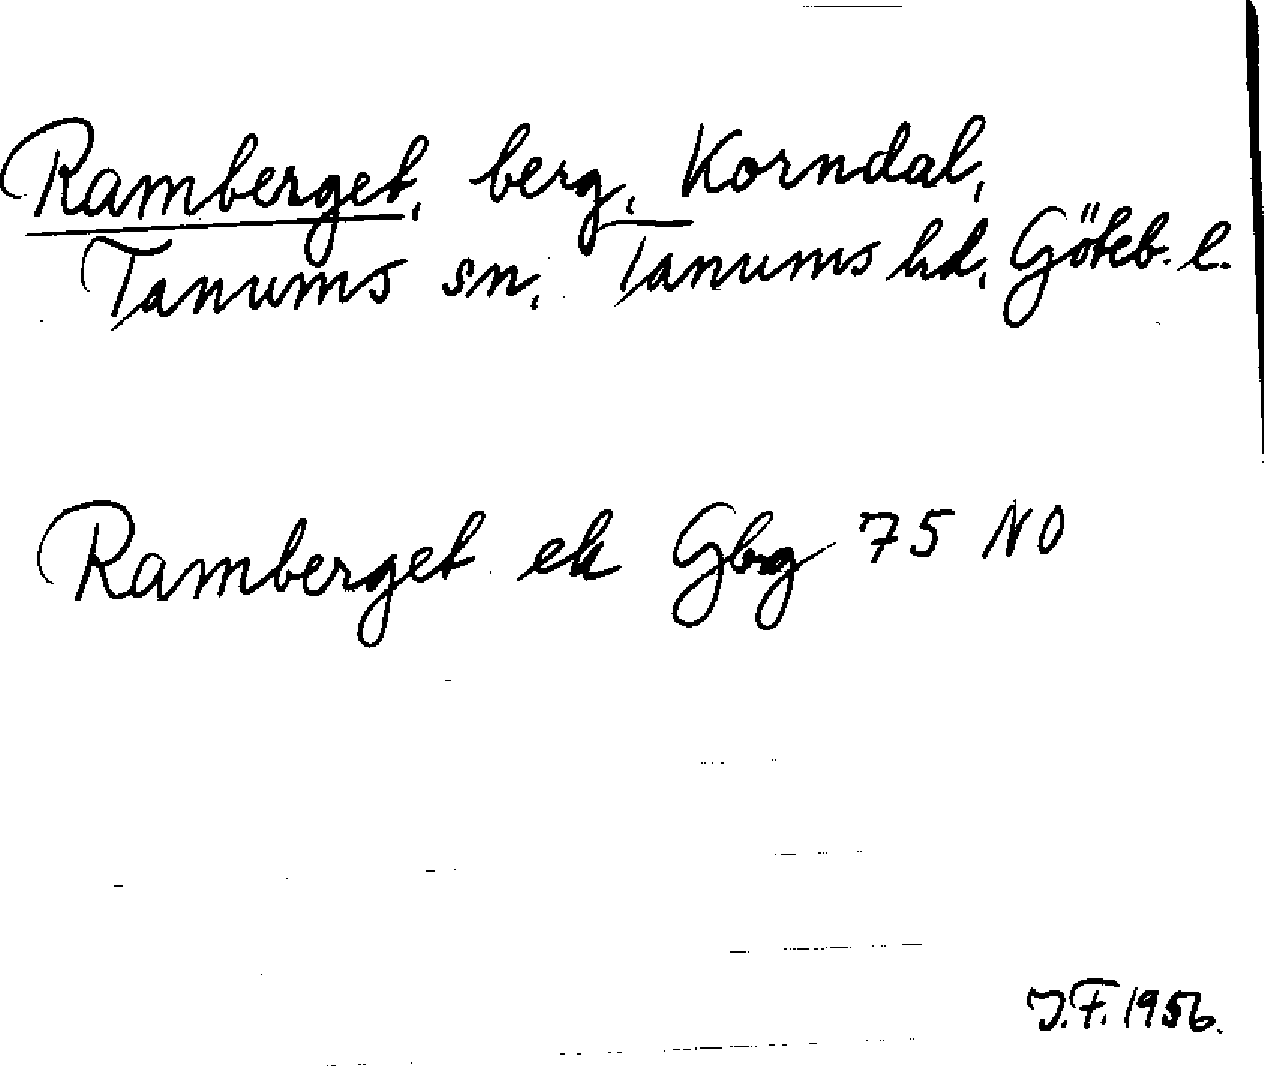 Ramberget, berg, Korndal,
Tanums sn, Tanums hd, Göteb. l.
Ramberget ek Gbg 75 NO
J.F. 1956.